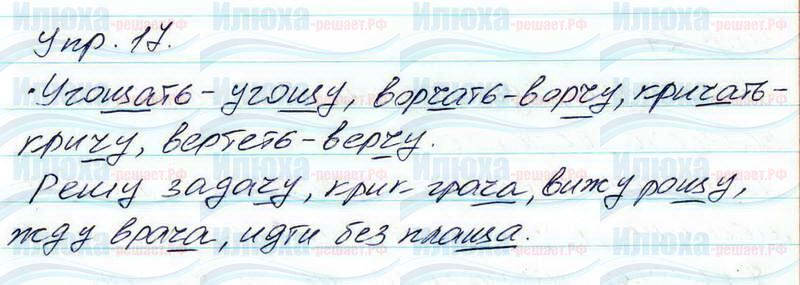 Упр. 17.
Угощать - угощу, ворчать - ворчу, кричать -
кричу, вертеть - верчу.
Решу задачу, крик грача, вижу рощу,
жду врача, идти без плаща.